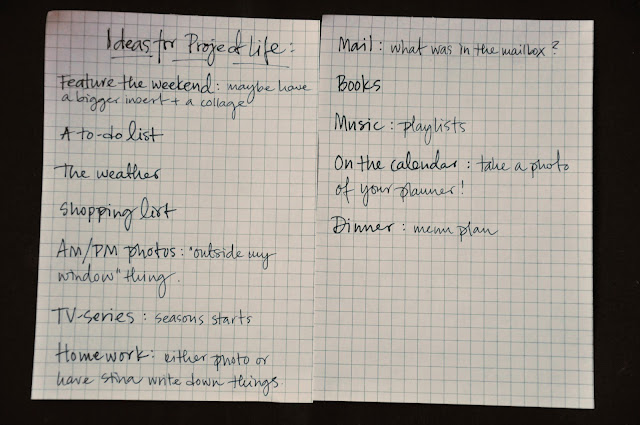 Ideas for Project Life:
Feature the weekend: maybe have
a bigger insert + a collage
A to-do list
The weather
Shopping list
AM/PM photos: "outside my
window" thing.
TV-series: seasons starts
Homework: either photo or
have stina write down things.
Mail: what was in the mailbox?
Books
Music: playlists
On the calendar: take a photo
of your planner!
Dinner: menu plan